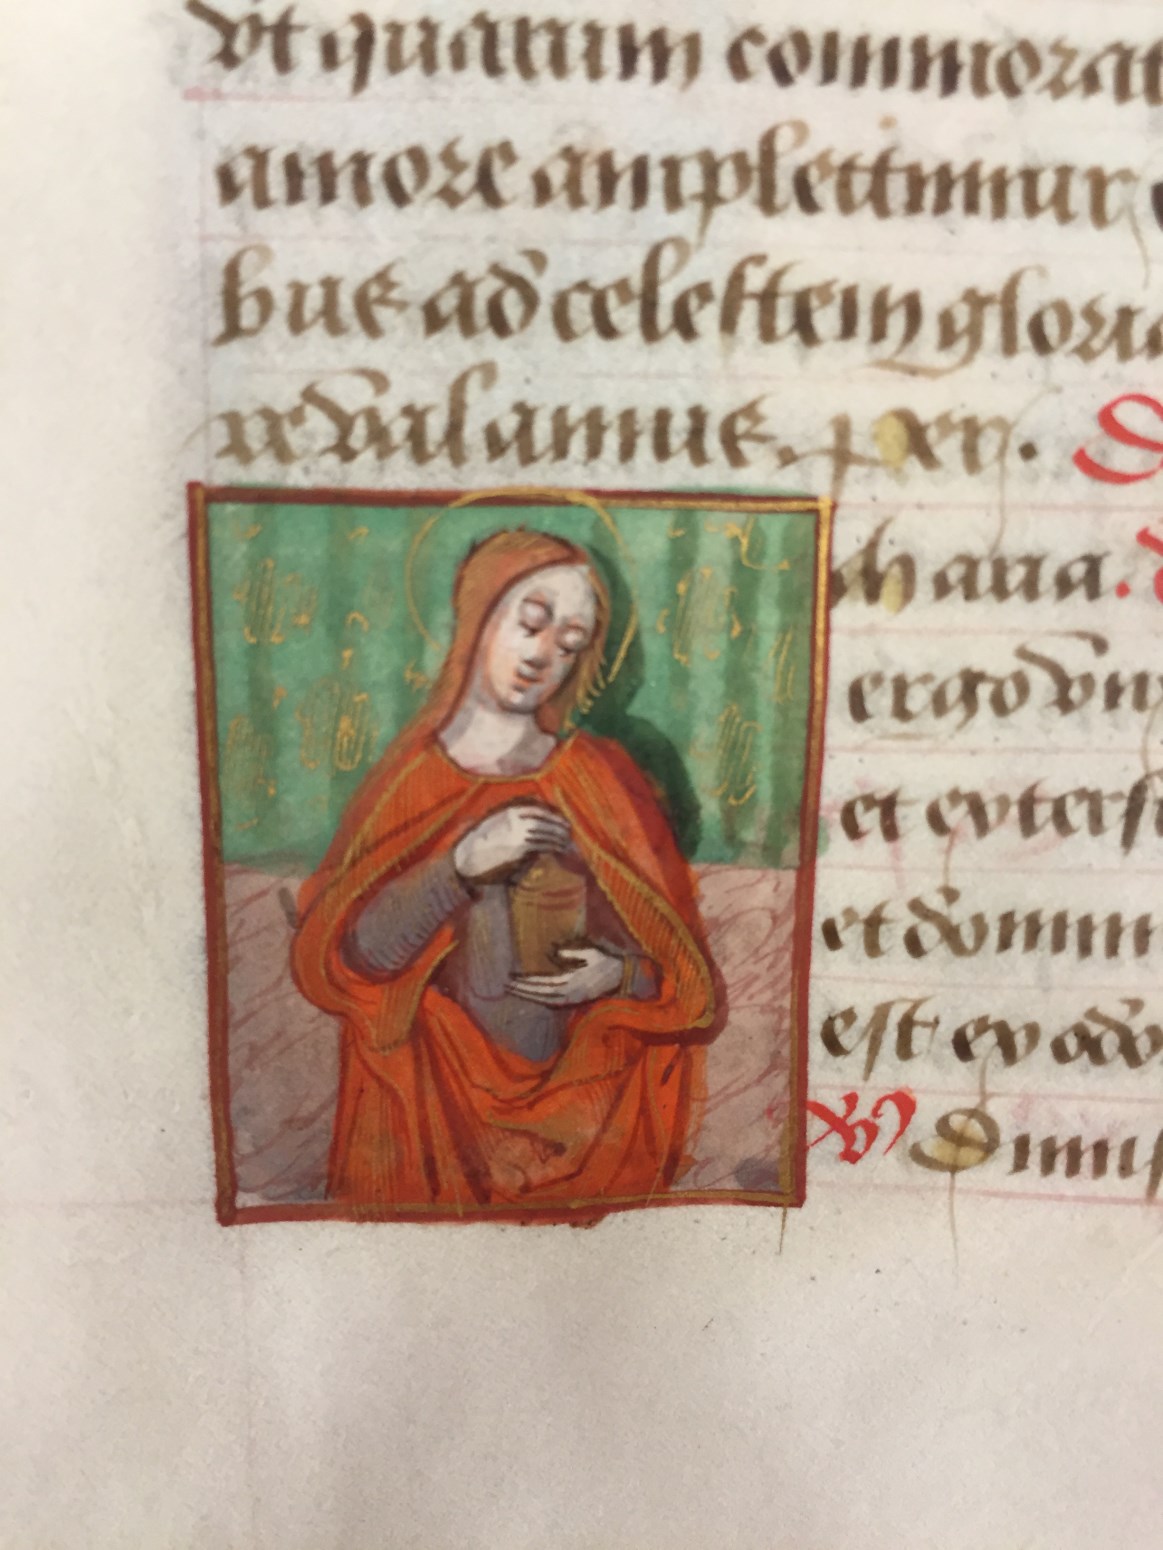 Vt quarum commorat
amore amplettimur
bus ad celestem gloria
per.
Maria.
ergo vn
et exters
et domum
est ex odo
Dimis